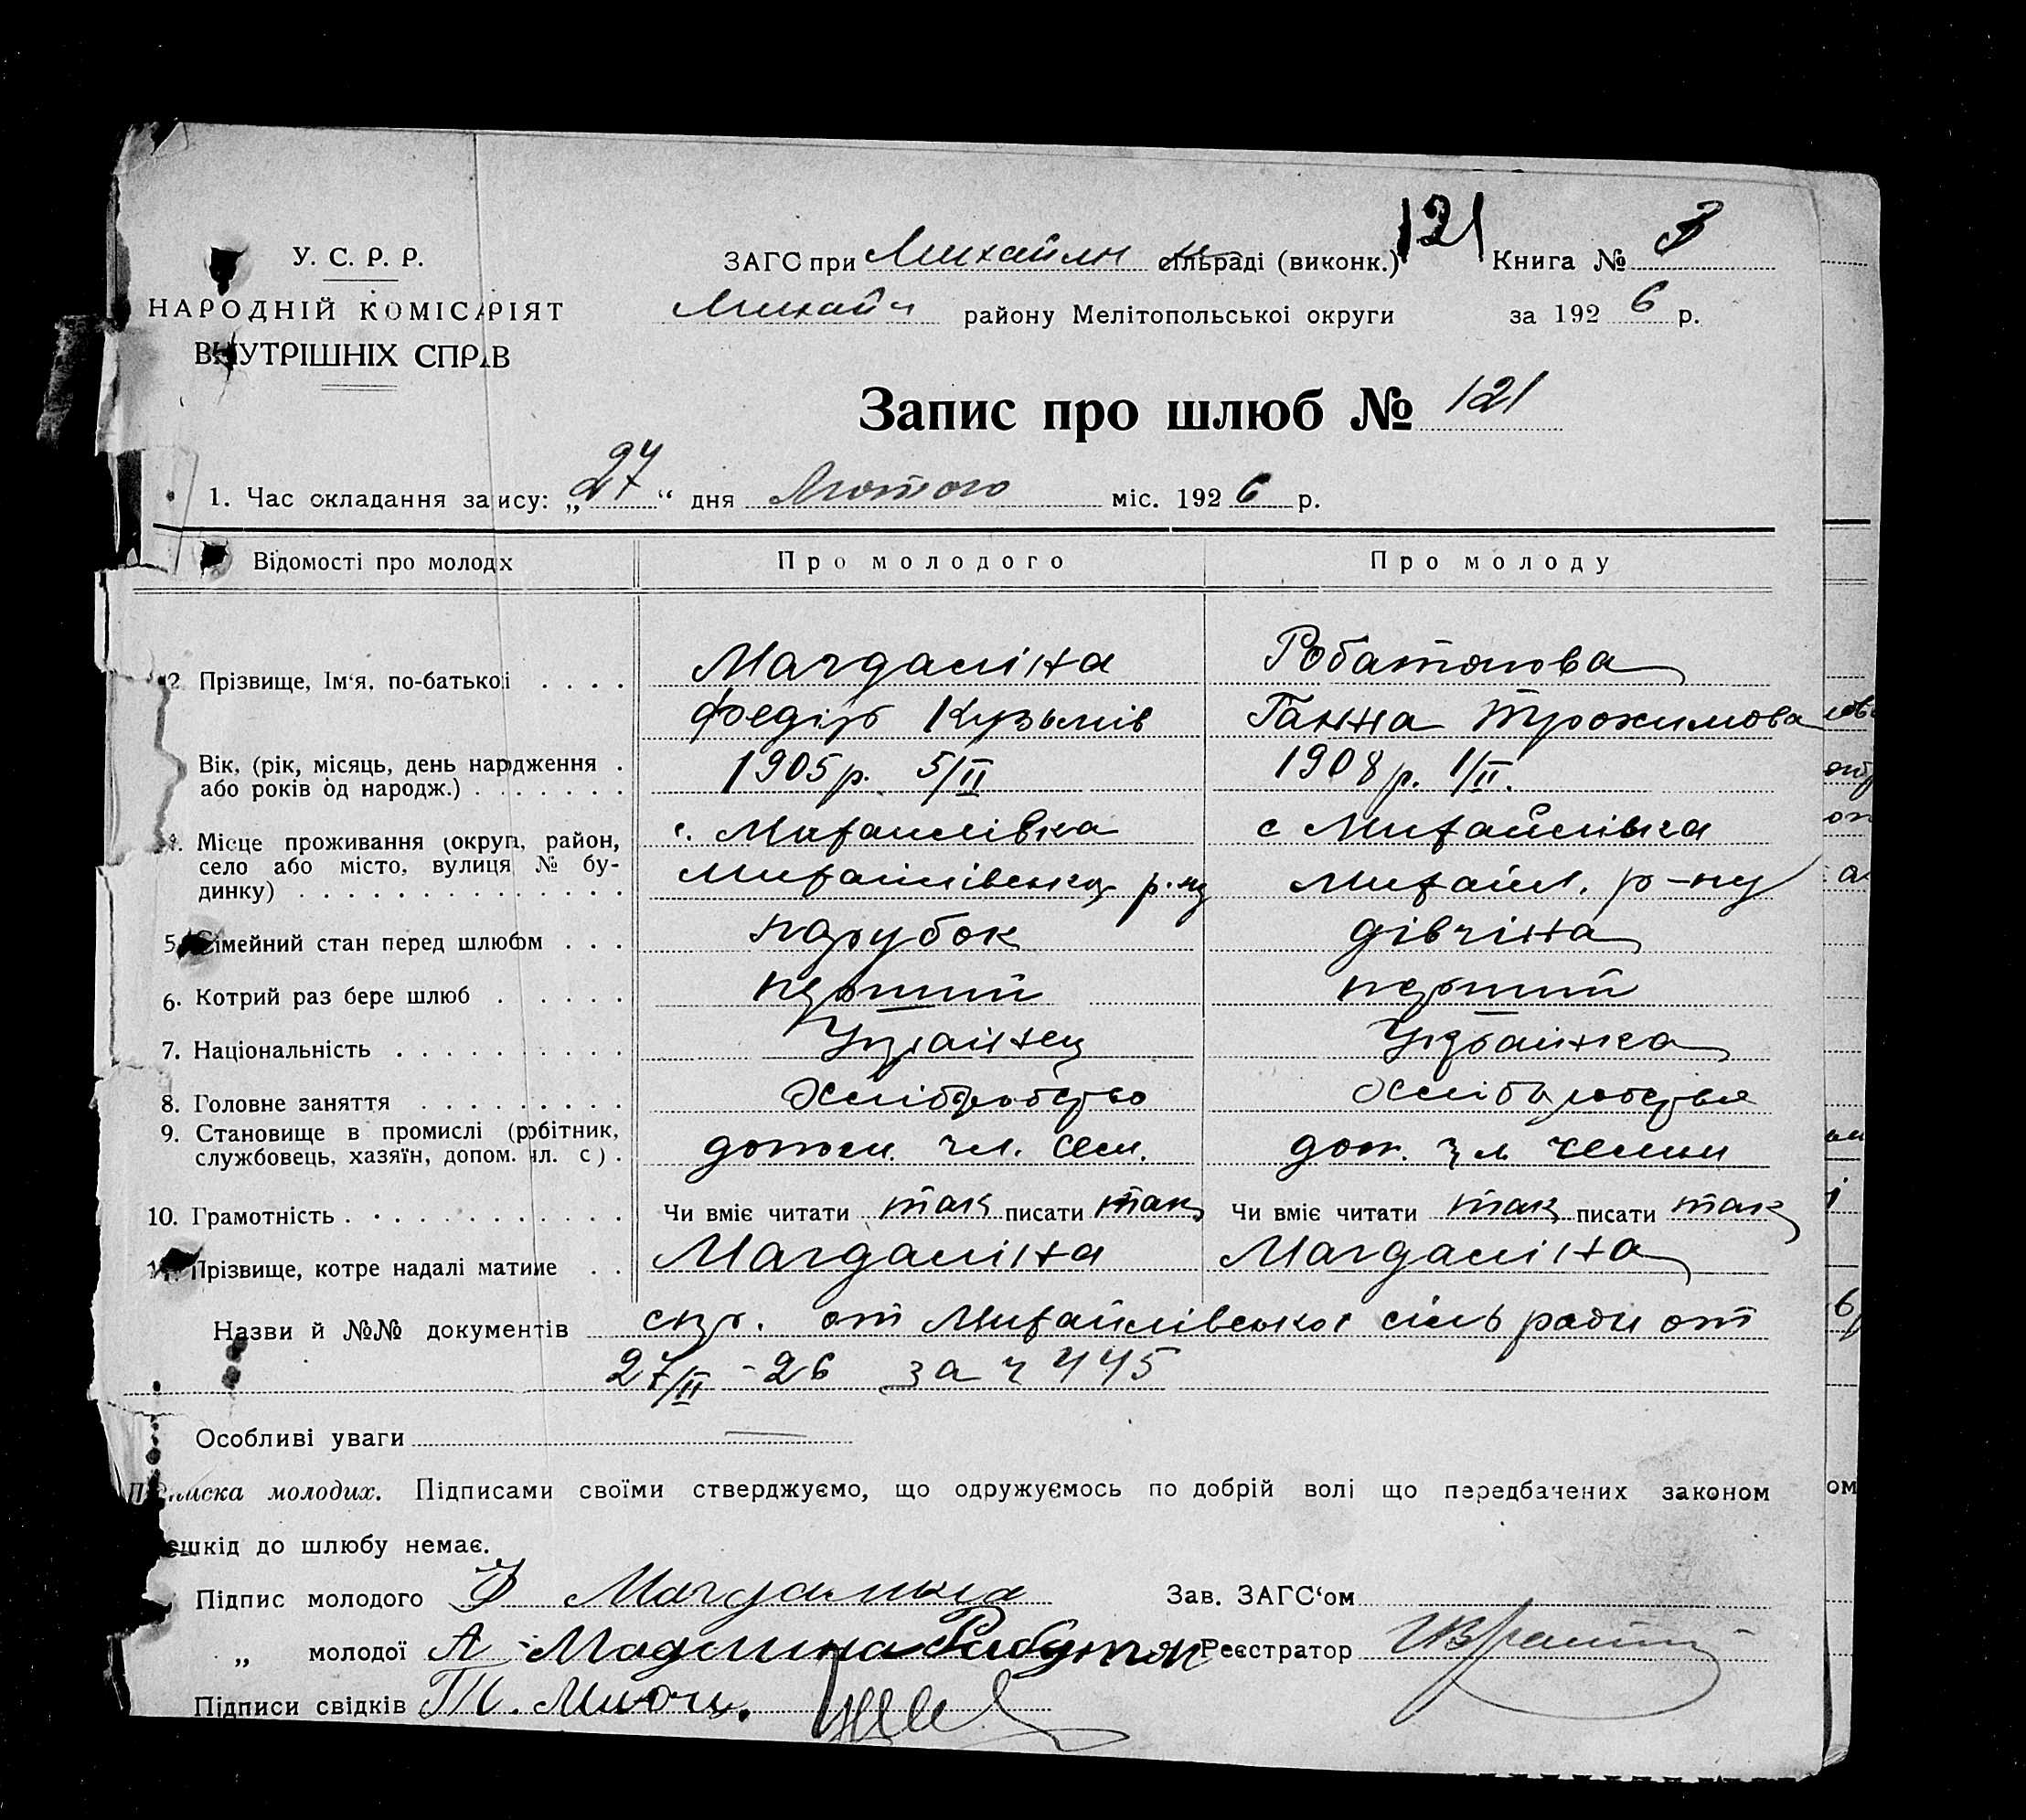 121
У. С. Р. Р.
ЗАГС при Михайлн сільраді (виконк.) Книга №
НАРОДНІЙ КОМІСАРІЯТ
Михайл району Мелітопольської округи за 1926 р.
ВНУТРІШНІХ СПРАВ
Запис про шлюб № 121
1. Час окладання запису: „27“ дня Лютого міс. 1926 р.
Відомості про молодх Про молодого Про молоду
2. Прізвище, Ім‘я, по-батької Магдаліна Робатькова
Федір Кузьмів Ганна Трохимова
Вік, (рік, місяць, день народження . 1905 р. 5/II 1908 р. 1/II.
або років од народж.)
4. Місце проживання (округа, район, с. Михайлівка с Михайлівка
село або місто, вулиця № бу-
динку) Михайлівського р-ну Михайл. р-ну
5. Сімейний стан перед шлюбом парубок дівчіна
6. Котрий раз бере шлюб перший перший
7. Національність Українец Українка
8. Головне заняття Хліборобство Хліборобство
9. Становище в промислі (робітник,
службовець, хазяїн, допом. чл. с) . допом. чл. сем. доп. чл семьи
10. Грамотність Чи вміє читати так писати так Чи вміє читати так писати так
11. Прізвище, котре надалі матиме Магдаліна Магдаліна
Назви й №№ документів от Михайлівської сільради от
27/II - 26 за ч 445
Особливі уваги —
Підписка молодих. Підписами своїми стверджуємо, що одружуємось по добрій волі що передбачених законом
ешкід до шлюбу немає.
Підпис молодого Ф Магдалина Зав. ЗАГС‘ом
„ молодої А Мадлина Реєстратор
Підписи свідків